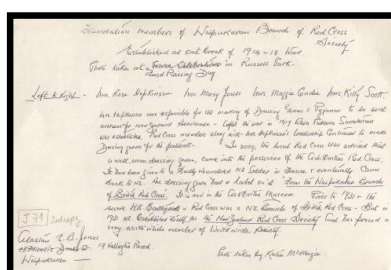 Foundation members of Waipukurau Branch of Red Cross
Society
Established at Out break of 1914-18 War.
Photo taken at a in Russell Park.
Fund Raising Day
Left to Right - Mrs Rose Hopkinson Mrs Mary Jones Mrs. Maggie Mrs Kitty Scott.
Mrs Hopkinson was responsible for the making of Dressing Gowns & Pyjamas to be sent
overseas for wounded Servicemen - in 1919 when Pukeora Sanatorium
was established Red Cross members along with Mrs Hopkinson's leadership continued to make
Dressing gowns for the patients. In 1959, the local Red Cross was advised that
a well worn dressing gown, came into the possession of the Red Cross.
It had been given to a badly wounded NZ Soldier in France & eventually came
Back to NZ. The dressing gown had a label on it "from the Waipukurau Branch
of British Red Cross". It is now in the Museum Prior to 1931 - the
Red Cross was a NZ Branch of British Red Cross - But in
1931 NZ established itself as the New Zealand Red Cross Society and has formed a
very worth while member of World wide Society.
J 79
N. B. Jones
19 Wellington Road.
Waipukurau
notes by Katie McKenzie